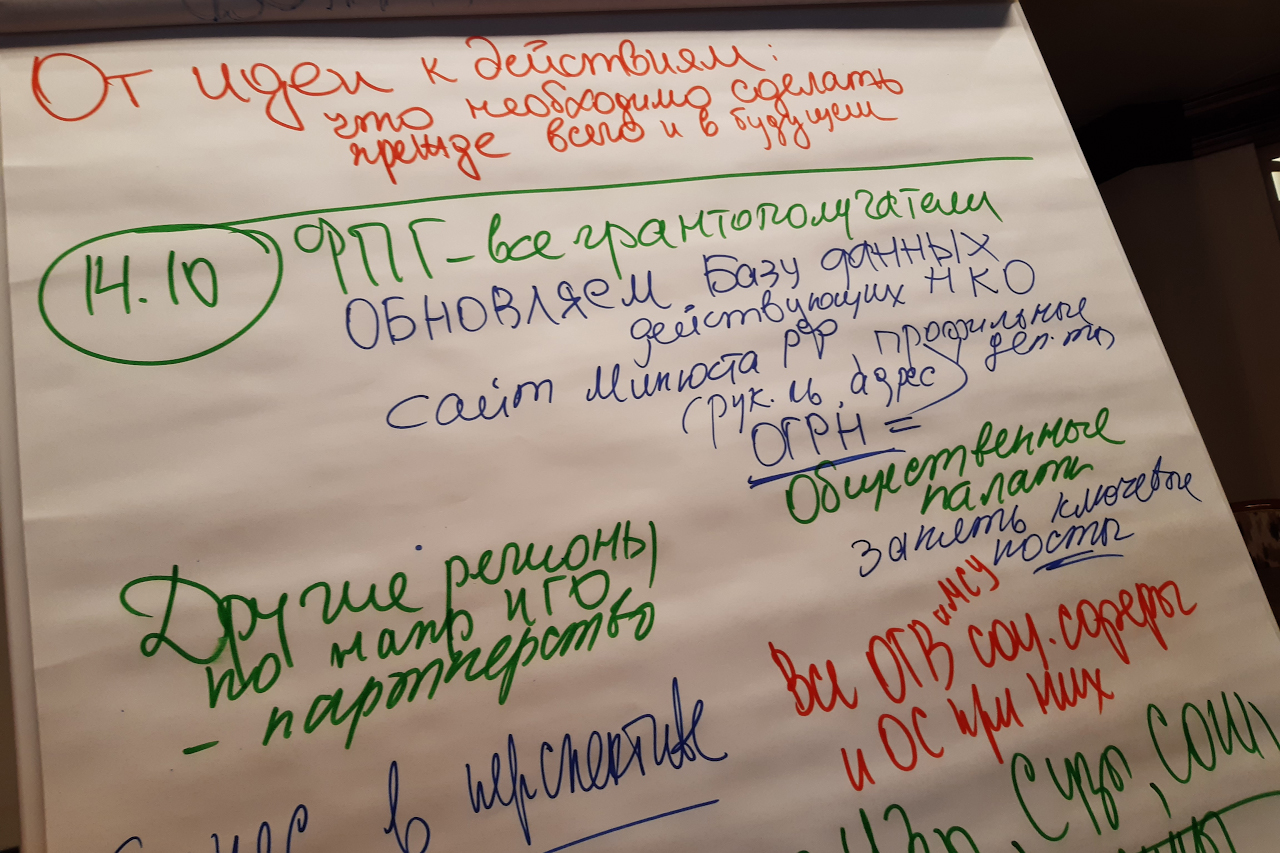 От идеи к действиям:
что необходимо сделать
прежде всего и в будущем
14.10
ФПГ - все грантополучатели
ОБНОВЛЯЕМ Базу данных
действующих НКО
сайт Минюста РФ профильные
(рук.ль, адрес) деп.ты,
ОГРН =
Общественные
палаты
занять ключевые
посты
Другие регионы
по напр ИГО
- партнерство
и МСУ
Все ОГВ соц. сферы
и ОС при них
в перспективе
Сузы, СОШ,